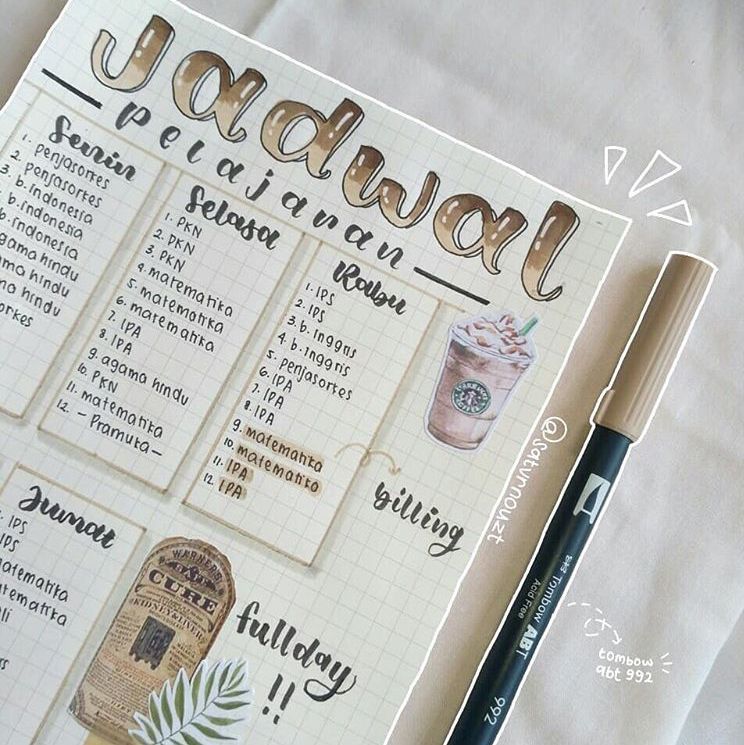 Jadwal
pelajaran
Senin
1. penjasorkes
2. penjasorkes
3. b. Indonesia
b. Indonesia
b. Indonesia
agama hindu
agama hindu
agama hindu
Selasa
1. PKN
2. PKN
3. PKN
4. matematika
5. matematika
6. matematika
7. IPA
8. IPA
9. agama hindu
10. PKN
11. matematika
12. - Pramuka -
Rabu
1. IPS
2. IPS
3. b. inggris
4. b. inggris
5. penjasorkes
6. IPA
7. IPA
8. IPA
9. matematika
10. matematika
11. IPA
12. IPA
billing
Jumat
IPS
IPS
matematika
matematika
WARNER'S
SAFE
CURE
KIDNEY & LIVER
fullday
!!
@saturnouzt
Tombow ABT
Acid Free
992
tombow
abt 992